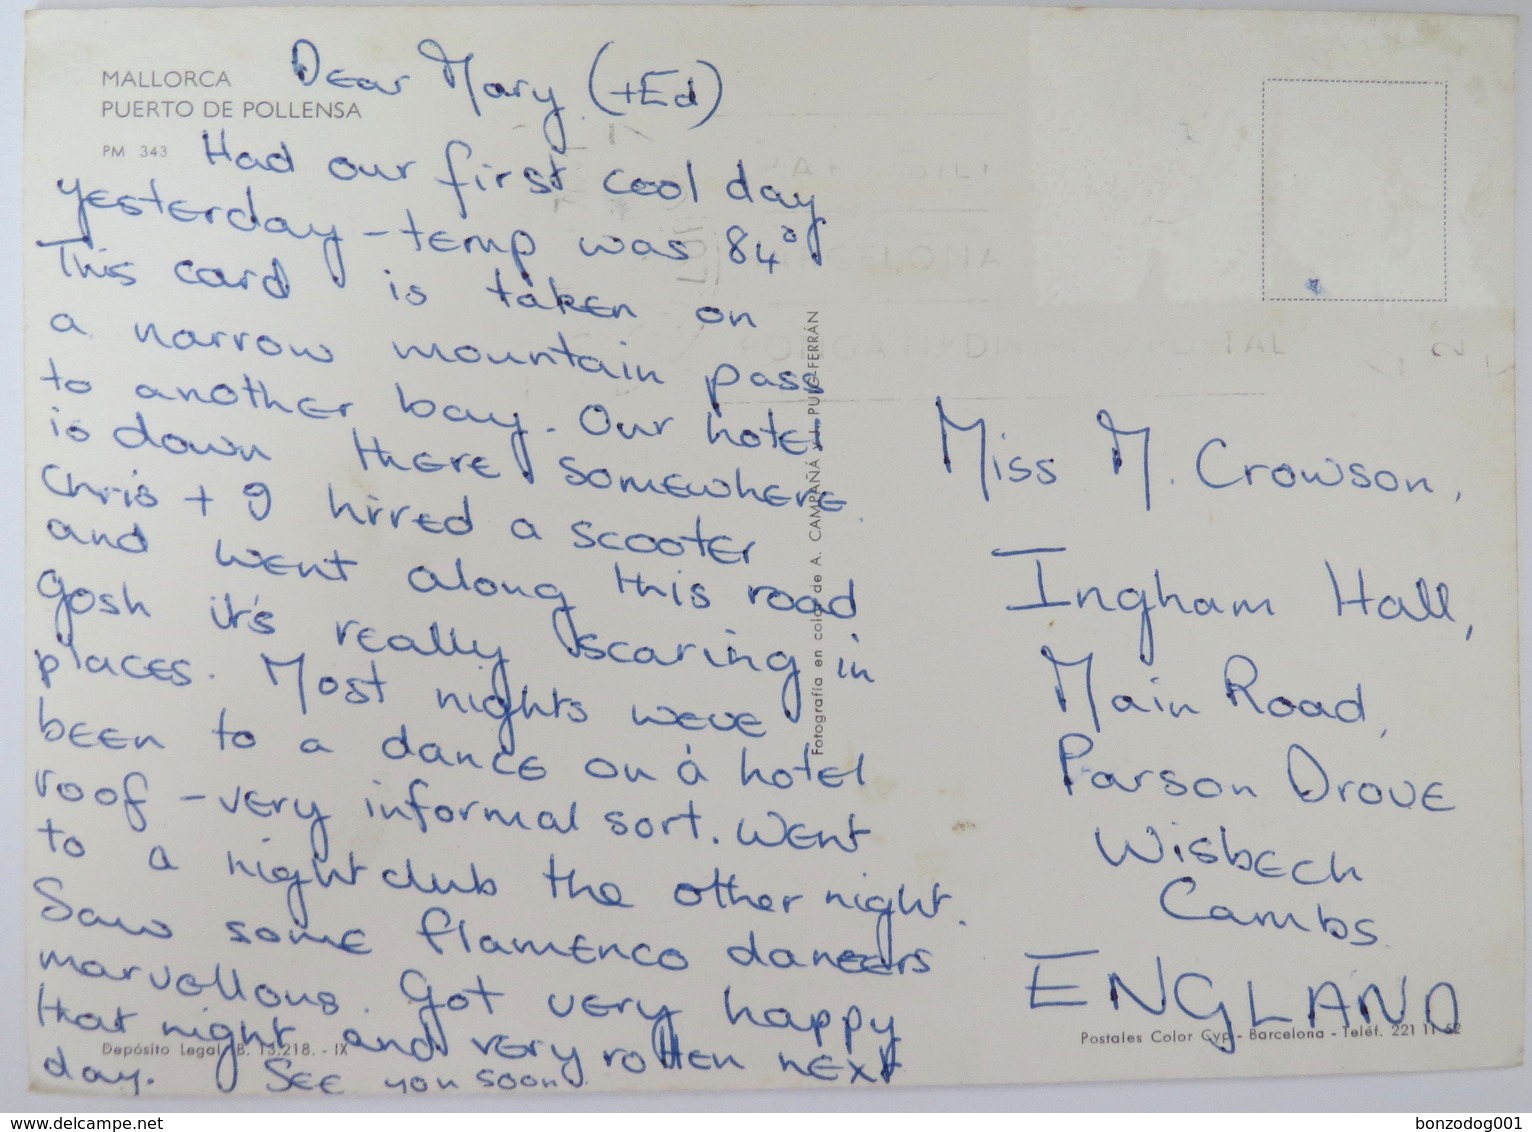 MALLORCA
PUERTO DE POLLENSA
PM 343
Dear Mary (+Ed)
Had our first cool day
yesterday - temp was 84°
This card is taken on
a narrow mountain pass
to another bay. Our hotel
is down there somewhere.
Chris + I hirred a scooter
and went along this road
gosh it's really scaring in
places. Most nights weve
been to a dance on a hotel
roof - very informal sort. Went
to a night club the other night.
Saw some flamenco dancers
marvellous. Got very happy
that night and very rotten next
day. See you soon
Depósito Legal B. 13.218. - IX
Fotografía en color de A. CAMPAÑÁ y J. PUIG-FERRÁN
Miss M. Crowson,
Ingham Hall,
Main Road,
Parson Drove
Wisbech
Cambs
ENGLAND
Postales Color Cyp - Barcelona - Teléf. 221 11 62
www.delcampe.net
bonzodog001